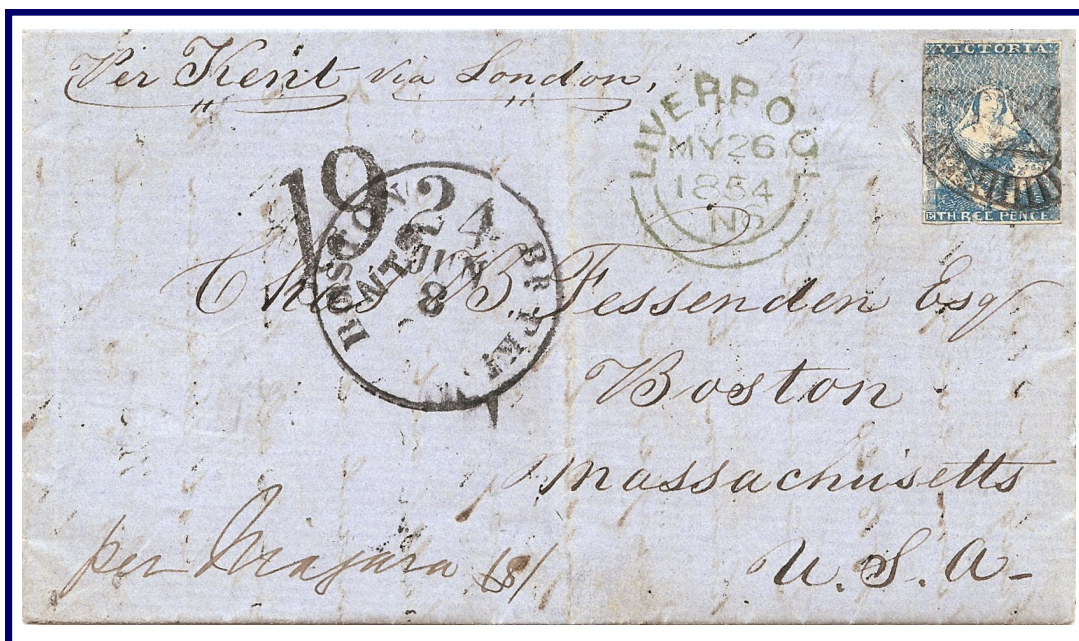 Per Kent via London,
VICTORIA
THREE PENCE
LIVERPOOL
MY 26
1854
NO
19
BOSTON BR. PKT
24
JUN
8
Chas B. Fessenden Esq
Boston
Massachusetts
U.S.A-
per Niagara